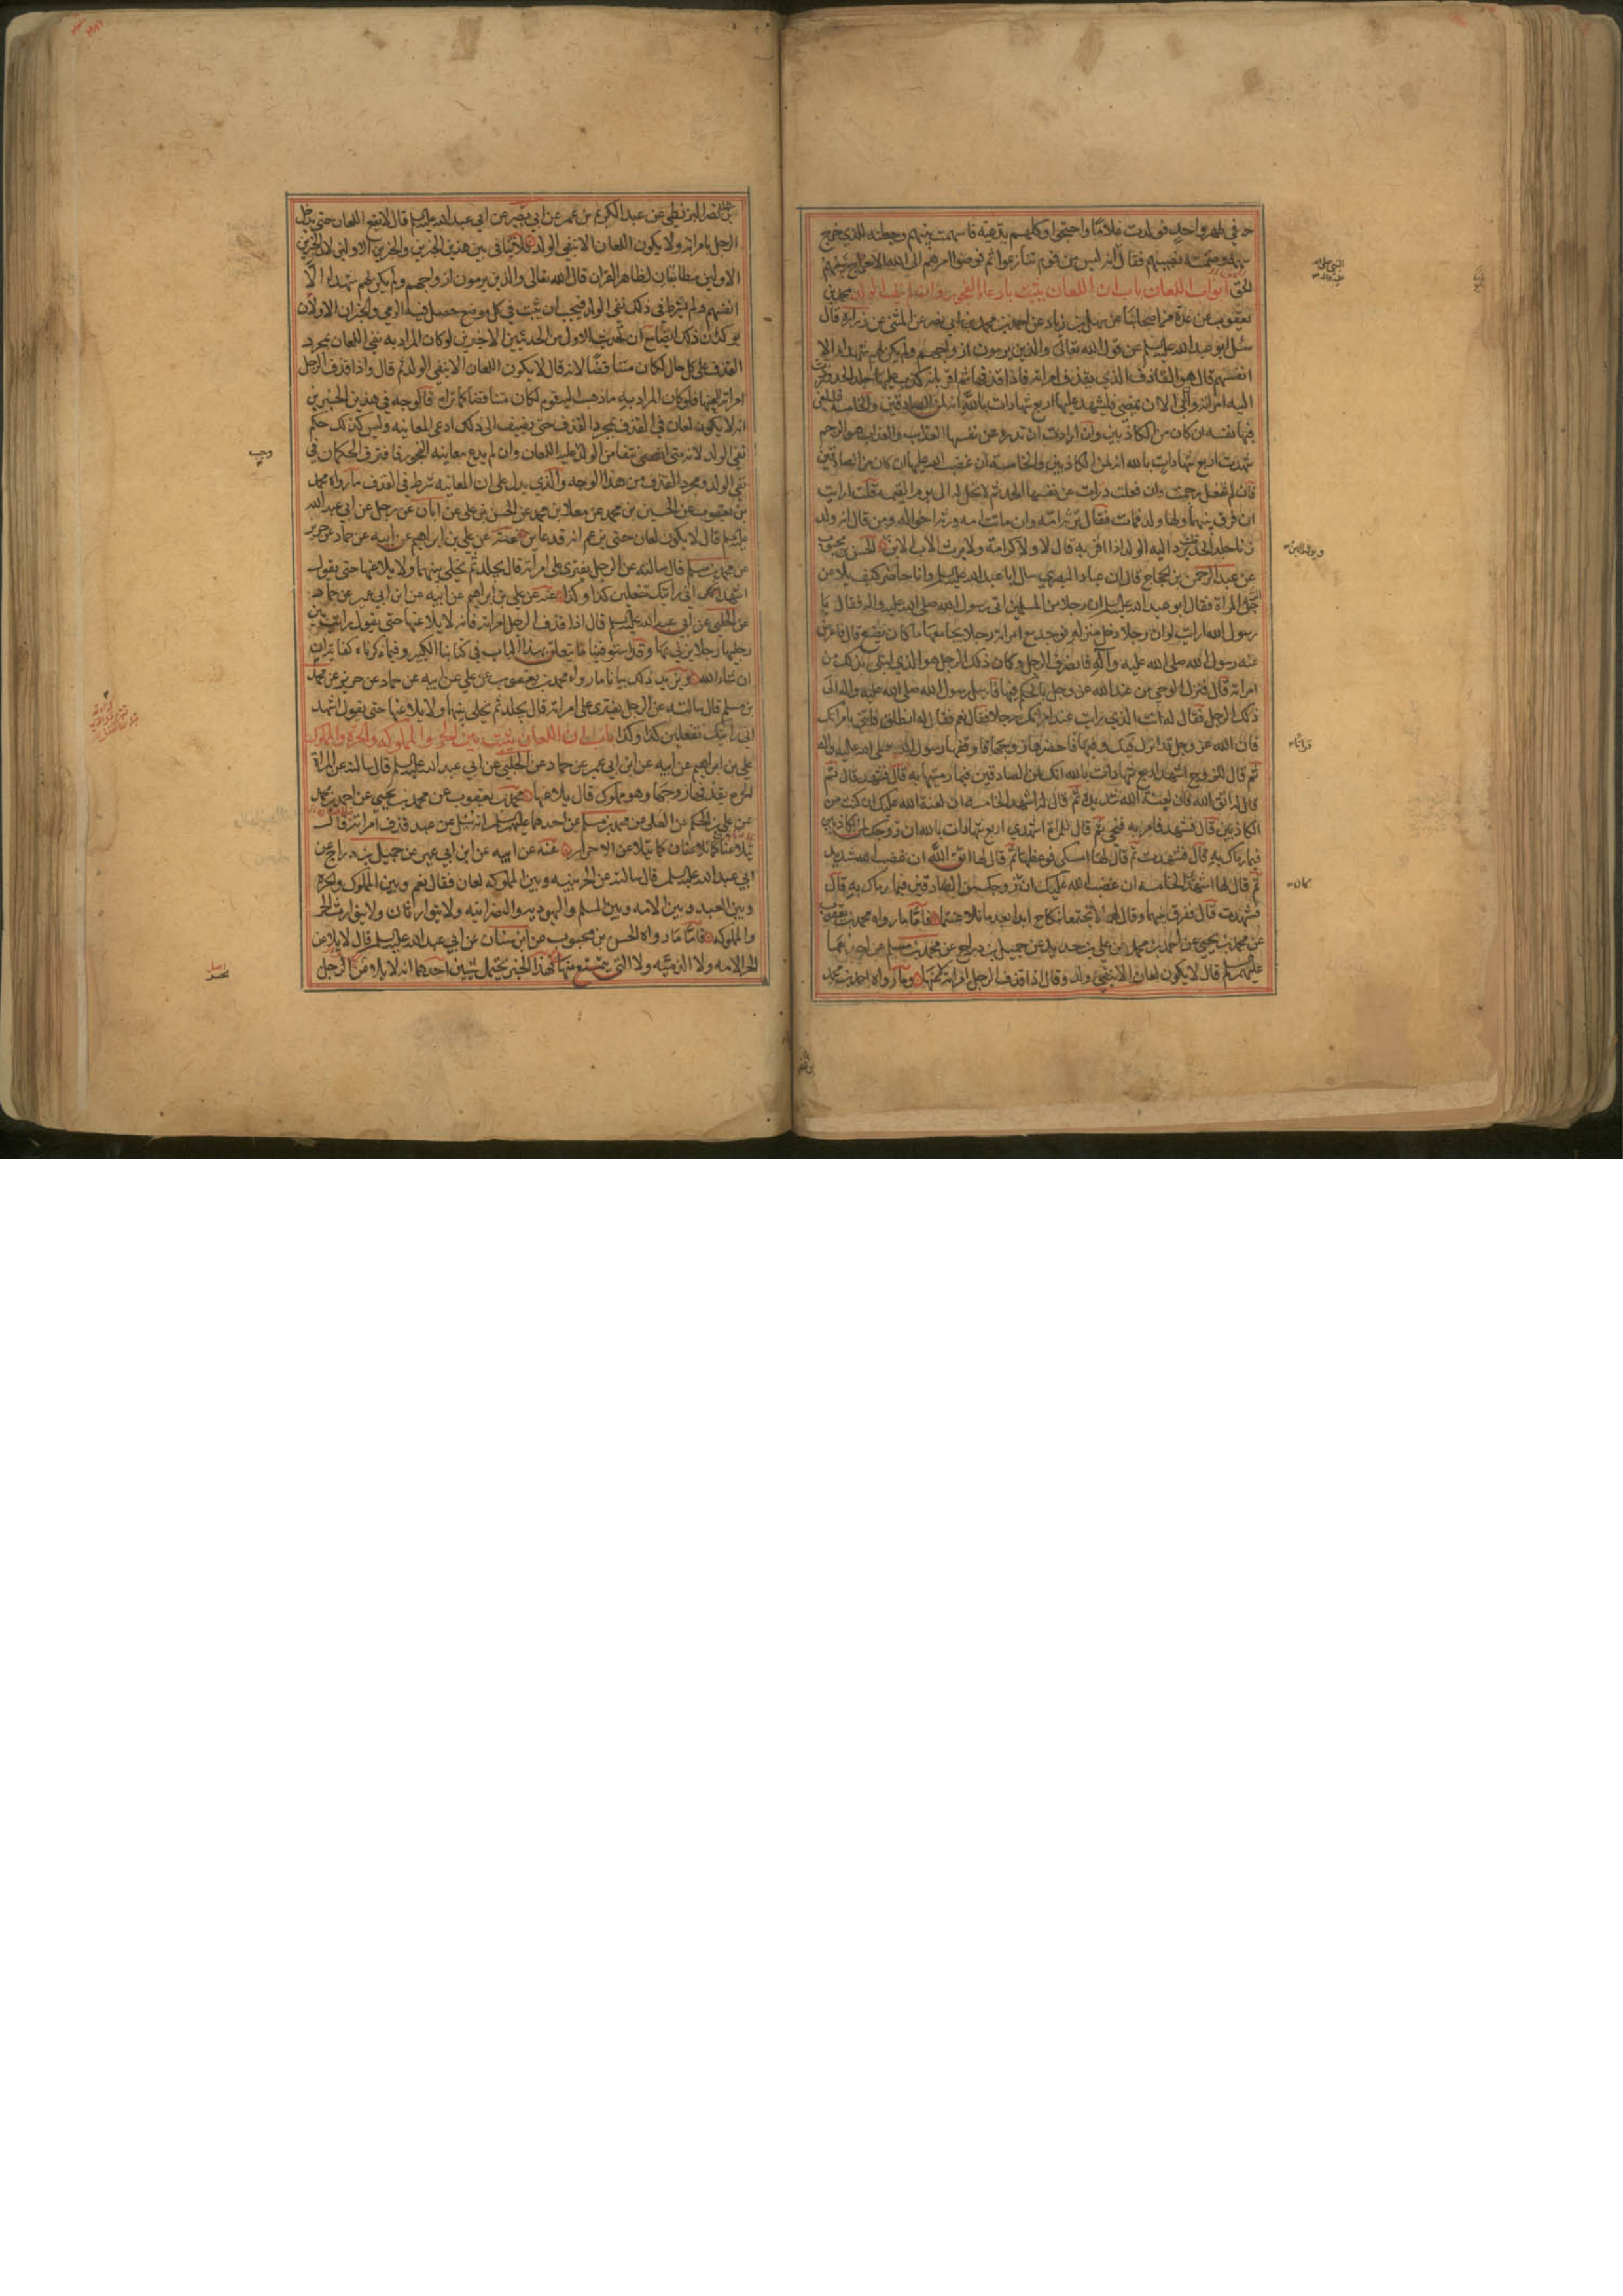 ها في طهر واحد فولدت غلاما واحتجوا وكلهم يدعيه فاسهمت بينهم وجعلته للذي خرج
سهمه وضمنته نصيبهم فقال انه ليس من قوم تنازعوا ثم فوضوا امرهم الى الله الا خرج سهم
المحق ابواب اللعان باب ان اللعان يثبت بادعاء الفجور محمد بن
يعقوب عن عدة من اصحابنا عن سهل بن زياد عن احمد بن محمد بن ابي نصر عن المثنى عن زرارة قال
سئل ابو عبد الله عليه السلم عن قول الله تعالى والذين يرمون ازواجهم ولم يكن لهم شهداء الا
انفسهم قال هو القاذف الذي يقذف امراته فاذا قذفها ثم اقر بانه كذب عليها جلد الحد وردت
اليه امراته وان ابى الا ان يمضي فليشهد عليها اربع شهادات بالله انه لمن الصادقين والخامسة يلعن
فيها نفسه ان كان من الكاذبين وان ارادت ان تدرء عن نفسها العذاب والعذاب هو الرجم
شهدت اربع شهادات بالله انه لمن الكاذبين والخامسة ان غضب الله عليها ان كان من الصادقين
فان لم تفعل رجمت وان فعلت درات عن نفسها الحد ثم لا تحل له الى يوم القيمة قلت ارايت
ان فرق بينهما ولها ولد فمات فقال ترثه امه وان ماتت امه ورثه اخواله ومن قال انه ولد
زنا جلد الحد قلت يرد اليه الولد اذا اقر به قال لا ولا كرامة ولا يرث الاب الابن الحسن بن محبوب
عن عبد الرحمن بن الحجاج قال ان عبادا البصري سال ابا عبد الله عليه السلم وانا حاضر كيف يلاعن
الرجل المراة فقال ابو عبد الله عليه السلم ان رجلا من المسلمين اتى رسول الله صلى الله عليه واله فقال يا
رسول الله ارايت لو ان رجلا دخل منزله فوجد مع امراته رجلا يجامعها ما كان يصنع قال فاعرض
عنه رسول الله صلى الله عليه وآله فانصرف الرجل وكان ذلك الرجل هو الذي ابتلى بذلك من
امراته قال فنزل الوحي من عند الله عز وجل بالحكم فيها فارسل رسول الله صلى الله عليه واله الى
ذلك الرجل فقال له انت الذي رايت عند امراتك رجلا فقال نعم فقال له انطلق فاتني بامراتك
فان الله عز وجل قد انزل فيك وفيها فاحضرها زوجها فاوقفها رسول الله صلى الله عليه واله
ثم قال للزوج اشهد اربع شهادات بالله انك لمن الصادقين فيما رميتها به قال فشهد قال ثم
قال له اتق الله فان لعنة الله شديدة ثم قال له اشهد الخامسة ان لعنة الله عليك ان كنت من
الكاذبين قال فشهد فامر به فنحي ثم قال للمراة اشهدي اربع شهادات بالله ان زوجك لمن الكاذبين
فيما رماك به قال فشهدت ثم قال لها امسكي فوعظها ثم قال لها اتق الله ان غضب الله شديد
ثم قال لها اشهدي الخامسة ان غضب الله عليك ان زوجك من الصادقين فيما رماك به قال
فشهدت قال ففرق بينهما وقال لهما لا تجتمعا بنكاح ابدا بعد ما تلاعنتما فاما ما رواه محمد بن يعقوب
عن محمد بن يحيى عن احمد بن محمد عن علي بن حديد عن جميل بن دراج عن محمد بن مسلم عن احدهما
عليهما السلم قال لا يكون لعان الا بنفي ولد وقال اذا قذف الرجل امراته لاعنها وما رواه احمد بن محمد
بن ابي نصر البزنطي عن عبد الكريم بن عمر عن ابي بصير عن ابي عبد الله عليه السلم قال لا يقع اللعان حتى يدخل
الرجل بامراته ولا يكون اللعان الا بنفي الولد فلا تنافي بين هذين الخبرين والخبرين الاولين لان الخبرين
الاولين مطابقان لظاهر القران قال الله تعالى والذين يرمون ازواجهم ولم يكن لهم شهداء الا
انفسهم ولم يشرط في ذلك نفي الولد فيجب ان يثبت في كل موضع حصل فيه الرمي والخبران الاولان
يوكدان ذلك ايضا مع ان الحديث الاول من الحديثين الاخيرين لو كان المراد به نفي اللعان بمجرد
القذف على كل حال لكان متناقضا لانه قال لا يكون اللعان الا بنفي الولد ثم قال واذا قذف الرجل
امراته لاعنها فلو كان المراد به ما ذهب اليه قوم لكان متناقضا كما تراه فالوجه في هذين الخبرين
انه لا يكون لعان في القذف بمجرد القذف حتى يضيف الى ذلك ادعى المعاينه وليس كذلك حكم
نفي الولد لانه متى انتفى من الولد وجب عليه اللعان وان لم يدع معاينه الفجور فافترق الحكمان في
نفي الولد ومجرد القذف من هذا الوجه والذي يدل على ان المعاينه شرط في القذف ما رواه محمد
بن يعقوب عن الحسين بن محمد عن معلا بن محمد عن الحسن بن علي عن ابان عن رجل عن ابي عبد الله
عليه السلم قال لا يكون لعان حتى يزعم انه قد عاين عنه عن علي بن ابراهيم عن ابيه عن حماد عن حريز
عن محمد بن مسلم قال سالته عن الرجل يفتري على امراته قال يجلد ثم يخلى بينهما ولا يلاعنها حتى يقول
اشهد اني رايتك تفعلين كذا وكذا عنه عن علي بن ابراهيم عن ابيه عن ابن ابي عمير عن حماد
عن الحلبي عن ابي عبد الله عليه السلم قال اذا قذف الرجل امراته فانه لا يلاعنها حتى يقول رايت بين
رجليها رجلا يزني بها وقد استوفينا ما يتعلق بهذا الباب في كتابنا الكبير وفيما ذكرناه كفاية
ان شاء الله ويزيد ذلك بيانا ما رواه محمد بن يعقوب عن علي عن ابيه عن حماد عن حريز عن محمد
بن مسلم قال سالته عن الرجل يفتري على امراته قال يجلد ثم يخلى بينهما ولا يلاعنها حتى يقول اشهد
اني رايتك تفعلين كذا وكذا باب ان اللعان يثبت بين الحر والمملوكه والحرة والمملوك
علي بن ابراهيم عن ابيه عن ابن ابي عمير عن حماد عن الحلبي عن ابي عبد الله عليه السلم قال سالته عن المراة
الحرة يقذفها زوجها وهو مملوك قال يلاعنها محمد بن يعقوب عن محمد بن يحيى عن احمد بن محمد
عن علي بن الحكم عن العلى عن محمد بن مسلم عن احدهما عليهما السلم انه سئل عن عبد قذف امراته قال
يتلاعنان كما يتلاعن الاحرار عنه عن ابيه عن ابن ابي عمير عن جميل بن دراج عن
ابي عبد الله عليه السلم قال سالته عن الحر بينه وبين المملوكه لعان فقال نعم وبين المملوك والحرة
وبين العبد وبين الامه وبين المسلم واليهوديه والنصرانيه ولا يتوارثان ولا يتوارث الحر
والمملوكه فاما ما رواه الحسن بن محبوب عن ابن سنان عن ابي عبد الله عليه السلم قال لا يلاعن
الحر الامه ولا الذميه ولا التي يتمتع بها فهذا الخبر يحتمل شيئين احدهما انه لا يلاعن الرجل